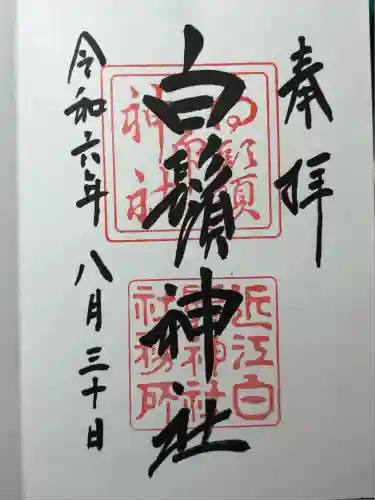 奉拝
白鬚神社
令和六年 八月三十日
近江白
鬚神社
社務所